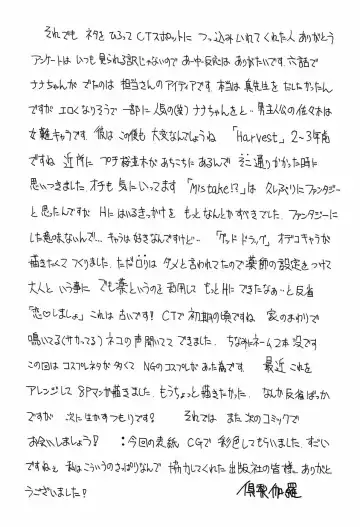 それでも ネタをひろってCTスポットに つっ込みいれてくれた人ありがとう
アンケートは いつも見られる訳じゃないので あー中・反応は ありがたいです 六話で
ナナちゃんが でたのは 担当さんのアイディアです 本当は真先生を だしたかったん
ですが エロくなりそうで 一部に人気の(笑)ナナちゃんをと… 男主人公の佐々木は
女難キャラです 彼は この後も 大変なんでしょうね 「Harvest」2~3年前
ですね 近所に プチ桜並木が あちこちにあるんで そこ通りかかった時に
思いつきました オチも 気にいってます 「Mistake!?」は 久しぶりにファンタジー
と思ったんですが Hにはいるきっかけを もっとなんとかすべきでした ファンタジーに
した意味ないんで!… キャラは好きなんですけど… 「グッドドラッグ」オデコキャラが
描きたくて つくりました ただロリは ダメと言われてたので 薬師の設定をつけて
大人と いう事に でも薬というのを 活用して もっとHに できたなぁ…と反省
「恋♡しましょ」これは 古いです!CTで 初期の頃ですね 家のまわりで
鳴いてる(サカってる)ネコの声聞いてて できました. ちなみにネーム2本没です
この回は コスプレネタが多くて NGのコスプレがあった為です 最近 これを
アレンジして 8Pマンガ描きました、もうちょっと描きたかった. なんか反省ばっか
ですが 次に生かすつもりです! それでは また次のコミックで
お会いしましょう! :今回の表紙 CGで彩色してもらいました. すごい
ですねぇ 私は こういうのさっぱりなんで 協力してくれた出版社の皆様 ありがと
うございました!
倶梨伽羅